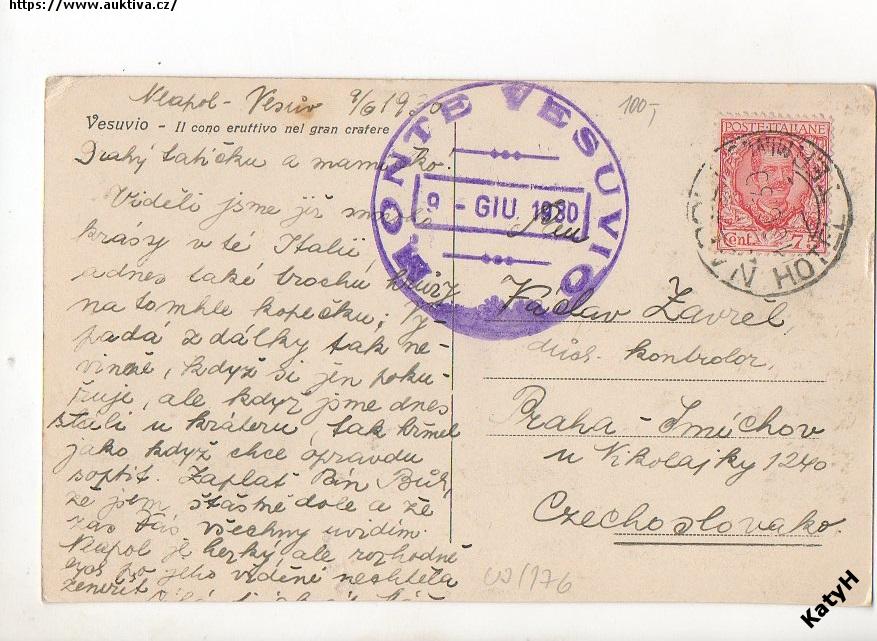 https://www.auktiva.cz/
Neapol - Vesuv 9/6 1930
100,-
Vesuvio - Il cono eruttivo nel gran cratere
Drahý tatíčku a maminko.
Viděli jsme již mnoho
krásy v té Italii
a dnes také trochu hrůzy
na tomhle kopečku; Vy-
padá z dálky tak ne-
vinně, když si jen poku-
řuje, ale když jsme dnes
stáli u kráteru, tak hřmel
jako když chce opravdu
soptit. Zaplať Pán Bůh,
že jsem šťastně dole a že
zas Vás všechny uvidím.
Neapol je hezký, ale rozhodně
po jeho vidění nechtěla
zemřít.
MONTE VESUVIO
9 - GIU. 1930
POSTE ITALIANE
Cent. 75
HOTEL
Václav Zavřel,
důch. kontrolor,
Praha - Smíchov
u Nikolajky 1240
Czechoslovako.
W/176
KatyH